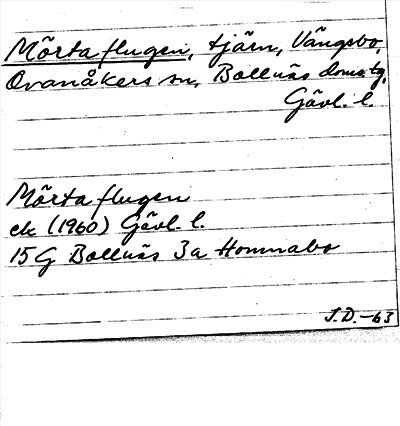 Mörtaflugen, tjärn, Vängsbo,
Ovanåkers sn, Bollnäs domstg,
Gävl. l.
Mörtaflugen
ek (1960) Gävl. l.
15 G Bollnäs 3a Homnabo
J.D.-63